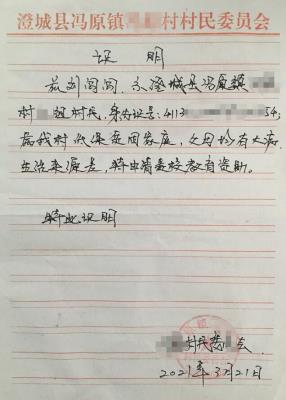 澄城县冯原镇 村村民委员会
证 明
兹刘闯闯，系澄城县冯原镇
村 组村民，身份证号：4113 54，
属我村 家庭，父母均有大病
生活来源差，特申请贵校教育资助。
特此证明
村民委 会
2021年3月21日